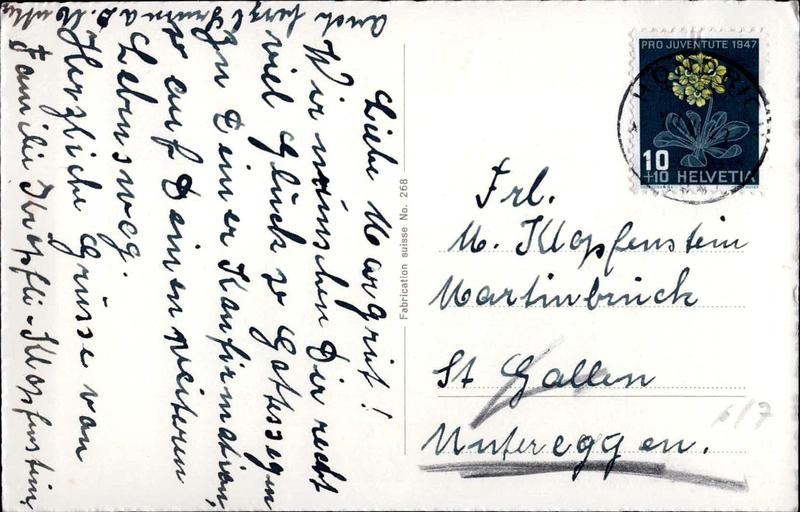 Liebe Margrit!
Wir wünschen Dir recht
viel Glück & Gottessegen
zu Deiner Konfirmation,
& auf Deinen weiteren
Lebensweg.
Herzliche Grüsse von
Familie Knöpfli-Klopfenstein,
auch herzl.
Fabrication suisse No. 268
PRO JUVENTUTE 1947
10
+10 HELVETIA
Frl.
M. Klopfenstein
Martinbruck
St Gallen
Untereggen.
6/7